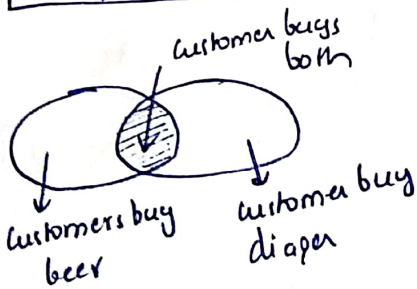 customer buys
both
customers buy
beer
customer buy
diaper